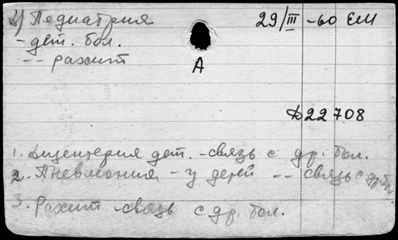 4) Педиатрия 29/III - 60 ЕМ
- дет. бол.
-- рахит
А
Д22708
1. Дизентерия дет. - связь с др. бол.
2. Пневмония - у детей -- связь с др. бол.
3. Рахит - связь с др. бол.